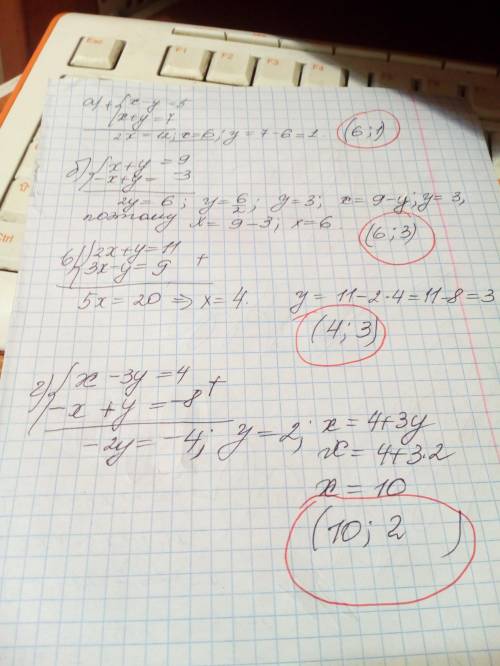 Esc F1 F2 F3 F4
Ctrl
а) + { x - y = 5
x + y = 7
2x = 12; x = 6; y = 7 - 6 = 1 (6; 1)
б) { x + y = 9
-x + y = -3
2y = 6; y = 6/2; y = 3; x = 9 - y; y = 3,
поэтому x = 9 - 3; x = 6. (6; 3)
в) { 2x + y = 11
3x - y = 9 +
5x = 20 => x = 4. y = 11 - 2·4 = 11 - 8 = 3
(4; 3)
г) { x - 3y = 4 +
-x + y = -8
-2y = -4; y = 2; x = 4 + 3y
x = 4 + 3·2
x = 10
(10; 2 )